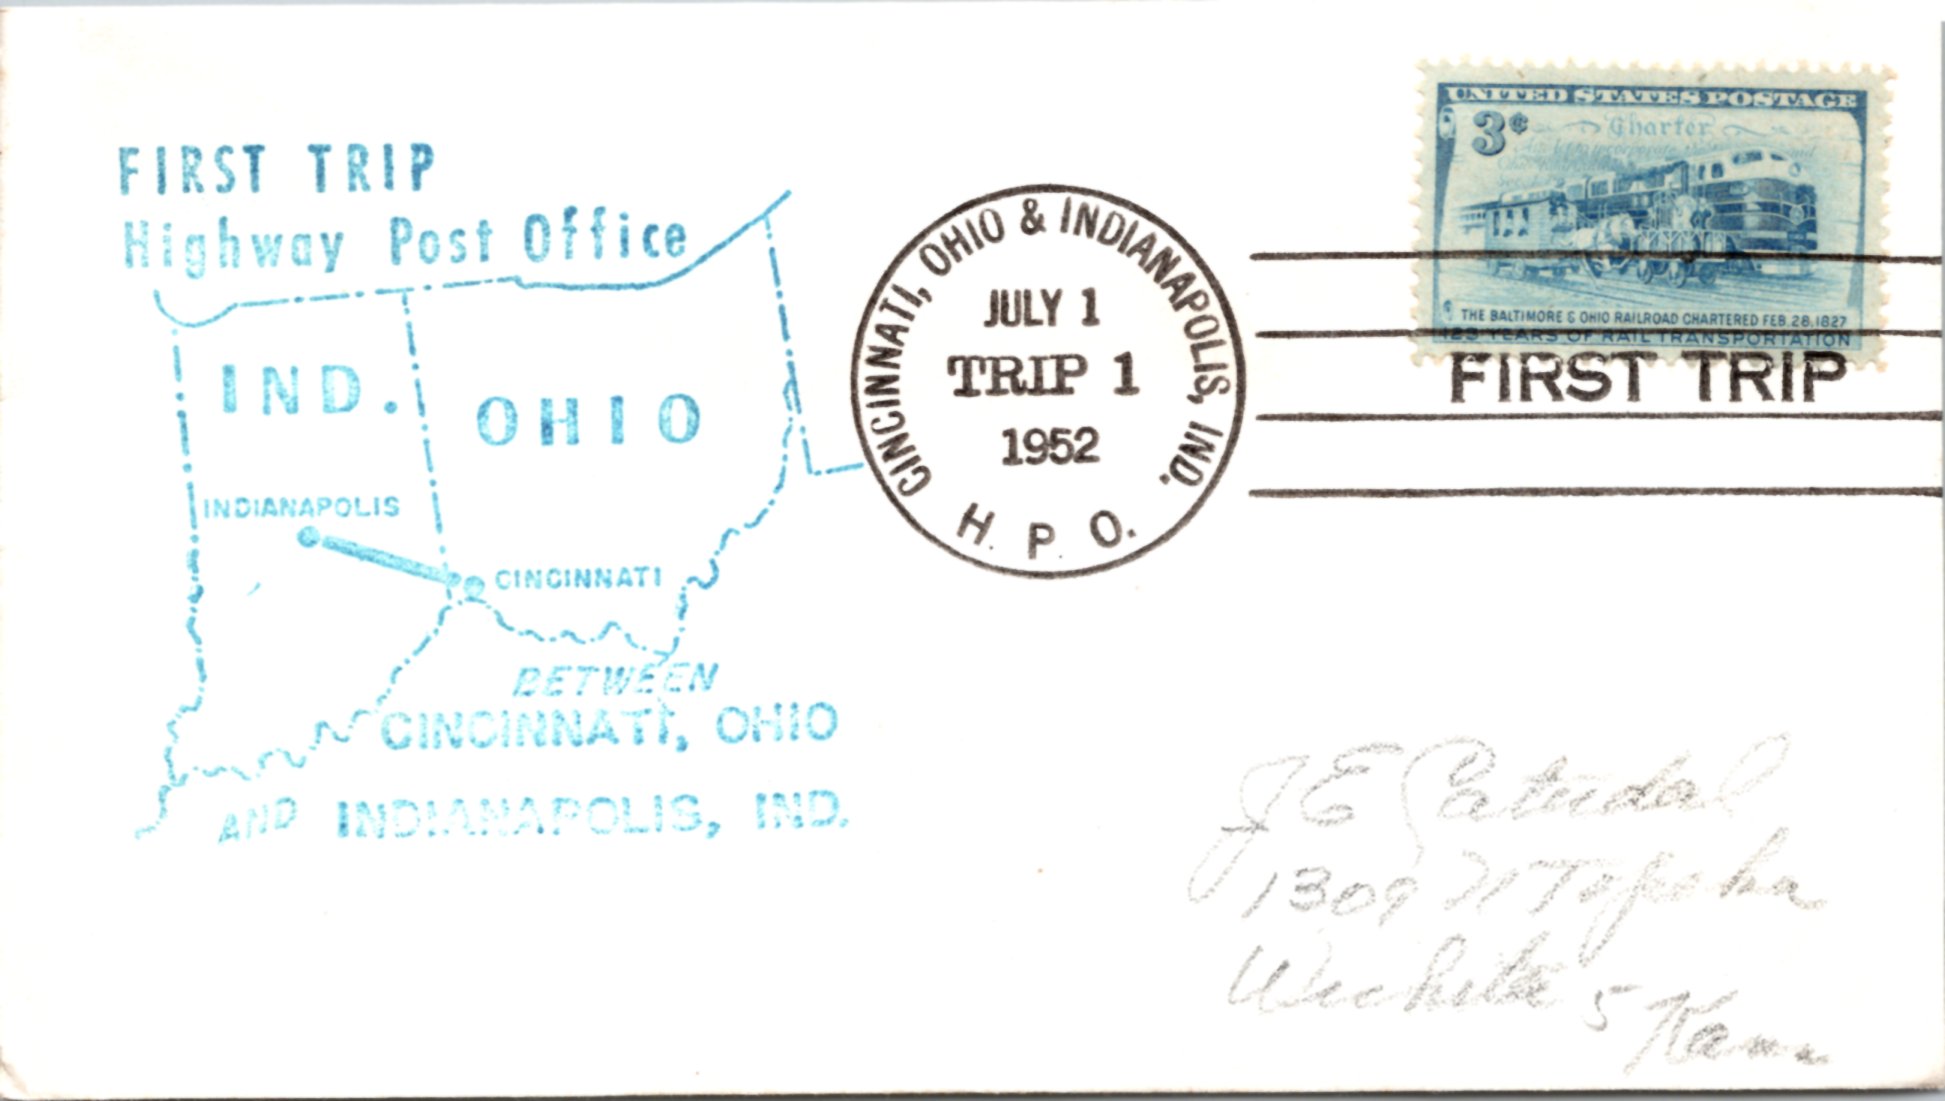 FIRST TRIP
Highway Post Office
IND.
OHIO
INDIANAPOLIS
CINCINNATI
BETWEEN
CINCINNATI, OHIO
AND INDIANAPOLIS, IND.
CINCINNATI, OHIO & INDIANAPOLIS, IND.
JULY 1
TRIP 1
1952
H. P. O.
UNITED STATES POSTAGE
3¢
Charter
THE BALTIMORE & OHIO RAILROAD CHARTERED FEB. 28, 1827
125 YEARS OF RAIL TRANSPORTATION
FIRST TRIP
J E
1309 N Topeka
Wichita 5 Kans